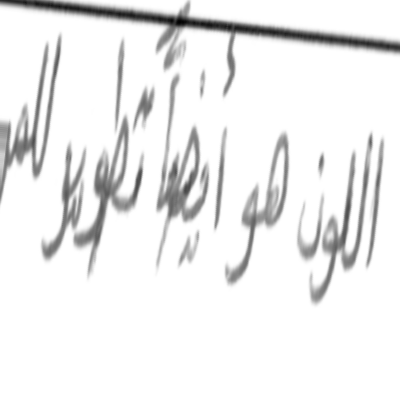 اللون هو أيضاً تطوير